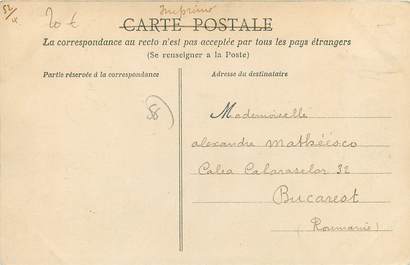 52/ix
20 €
Imprimé
CARTE POSTALE
La correspondance au recto n'est pas acceptée par tous les pays étrangers
(Se renseigner a la Poste)
Partie réservée à la correspondance
Adresse du destinataire
58
Mademoiselle
alexandre Mathéesco
Calea Calaraselor 32
Bucarest
(Roumanie)